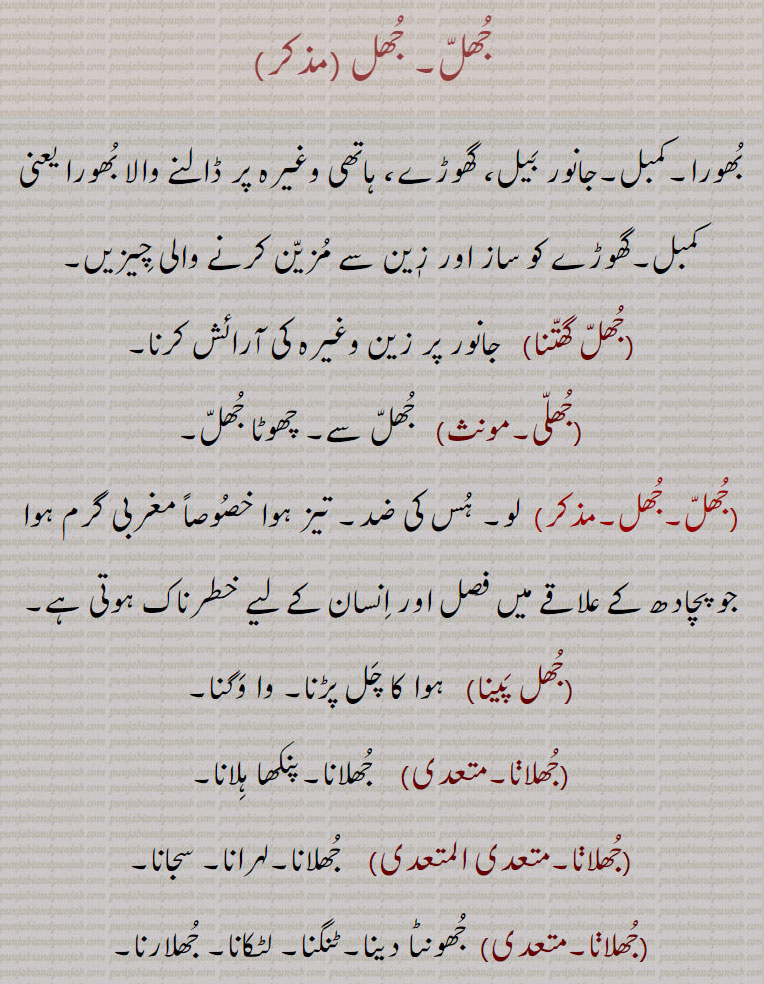 جُھلّ۔ جُھل (مذکر)
بُھورا۔کمبل۔جانور بَیل، گھوڑے، ہاتھی وغیرہ پر ڈالنے والا بُھورا یعنی
کمبل۔گھوڑے کو ساز اور زِین سے مُزیّن کرنے والی چِیزیں۔
(جُھلّ گھتّنا) جانور پر زین وغیرہ کی آرائش کرنا۔
(جُھلّی۔مونث) جُھلّ سے۔ چھوٹا جُھلّ۔
(جُھلّ۔جُھل۔مذکر) لو۔ ہُس کی ضد۔ تیز ہوا خصُوصاً مغربی گرم ہوا
جو پچادھ کے علاقے میں فصل اور اِنسان کے لیے خطرناک ہوتی ہے۔
(جُھل پَینا) ہوا کا چَل پڑنا۔ وا وَگنا۔
(جُھلاݨا۔متعدی) جُھلانا۔پنکھا ہِلانا۔
(جُھلاݨا۔متعدی المتعدی) جُھلانا۔لہرانا۔ سجانا۔
(جُھلاݨا۔متعدی) جُھونٹا دینا۔ٹنگنا۔ لٹکانا۔ جُھلارنا۔